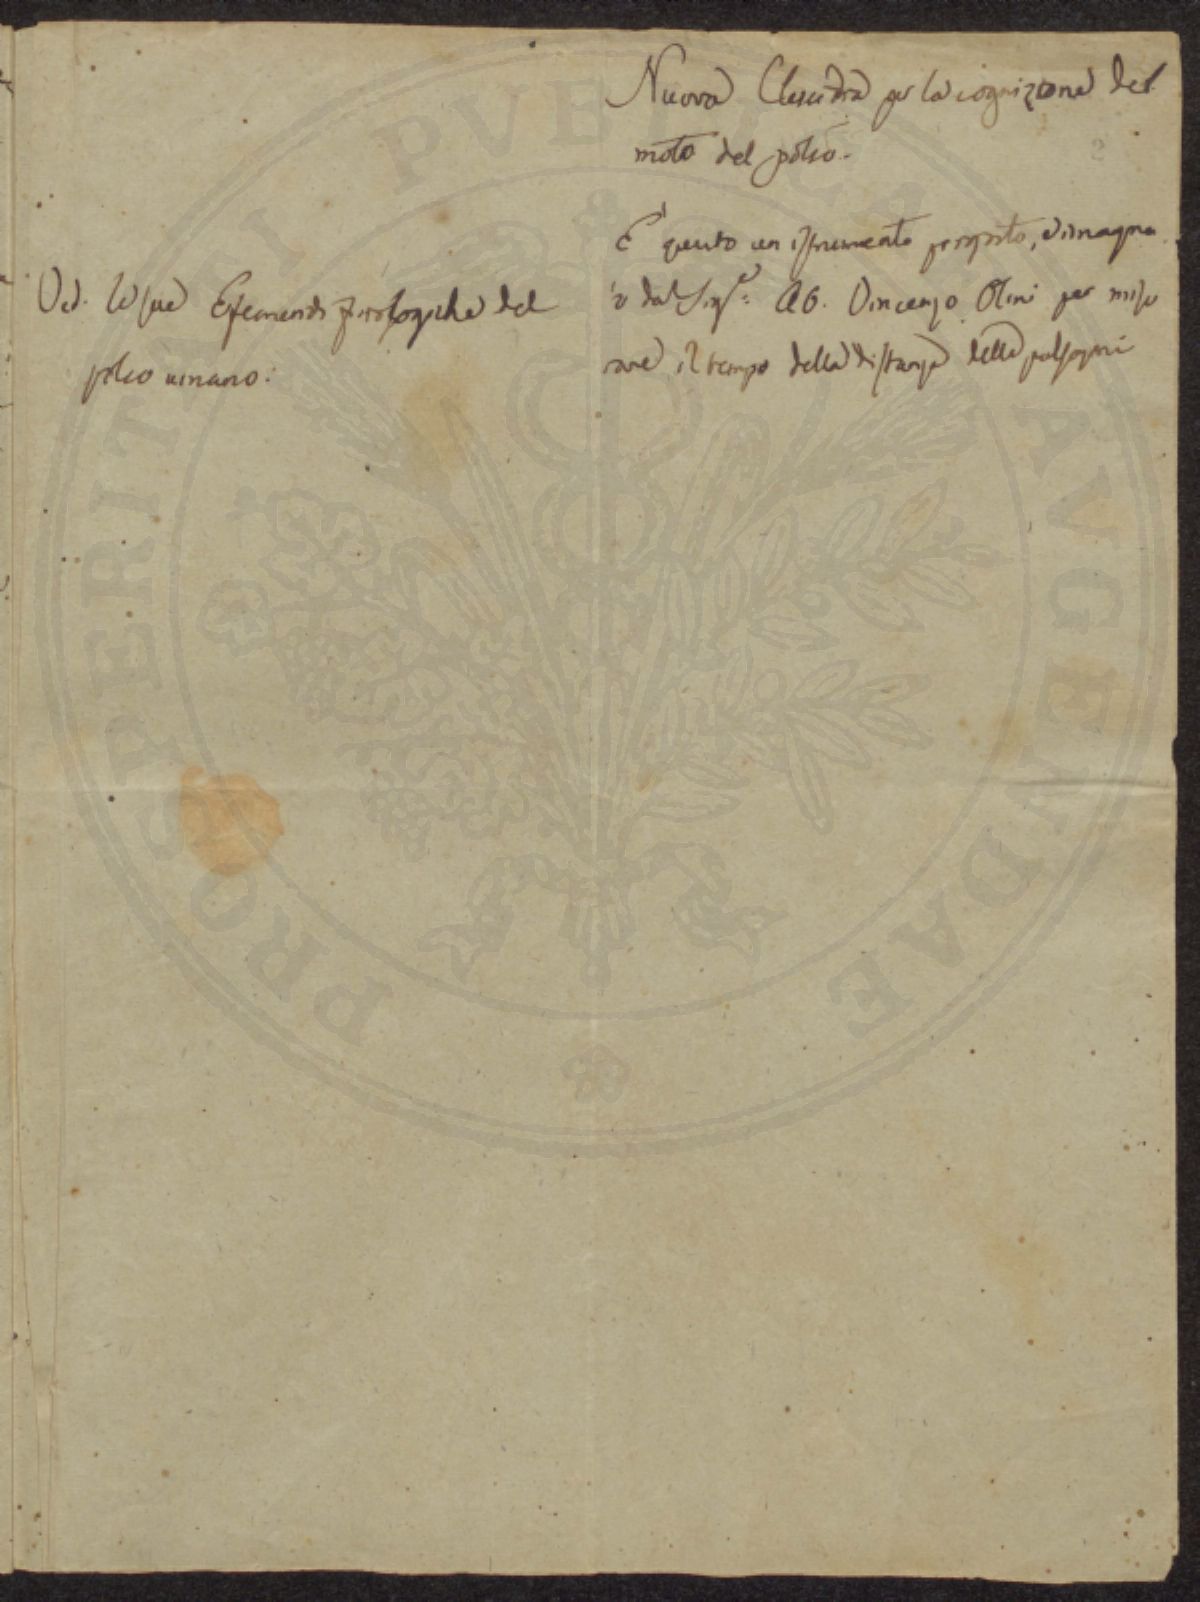 Nuova Clesidra per la cognizione del
moto del polso.
2
È questo un istrumento proposto, e imagina
to dal Sig.e: Ab. Vincenzo Olini per misu
rare il tempo della distanza delle pulsazioni
Ved. le sue Efemeridi fisiologiche del
polso umano.
PROSPERITATI PVBLICAE AVGENDAE